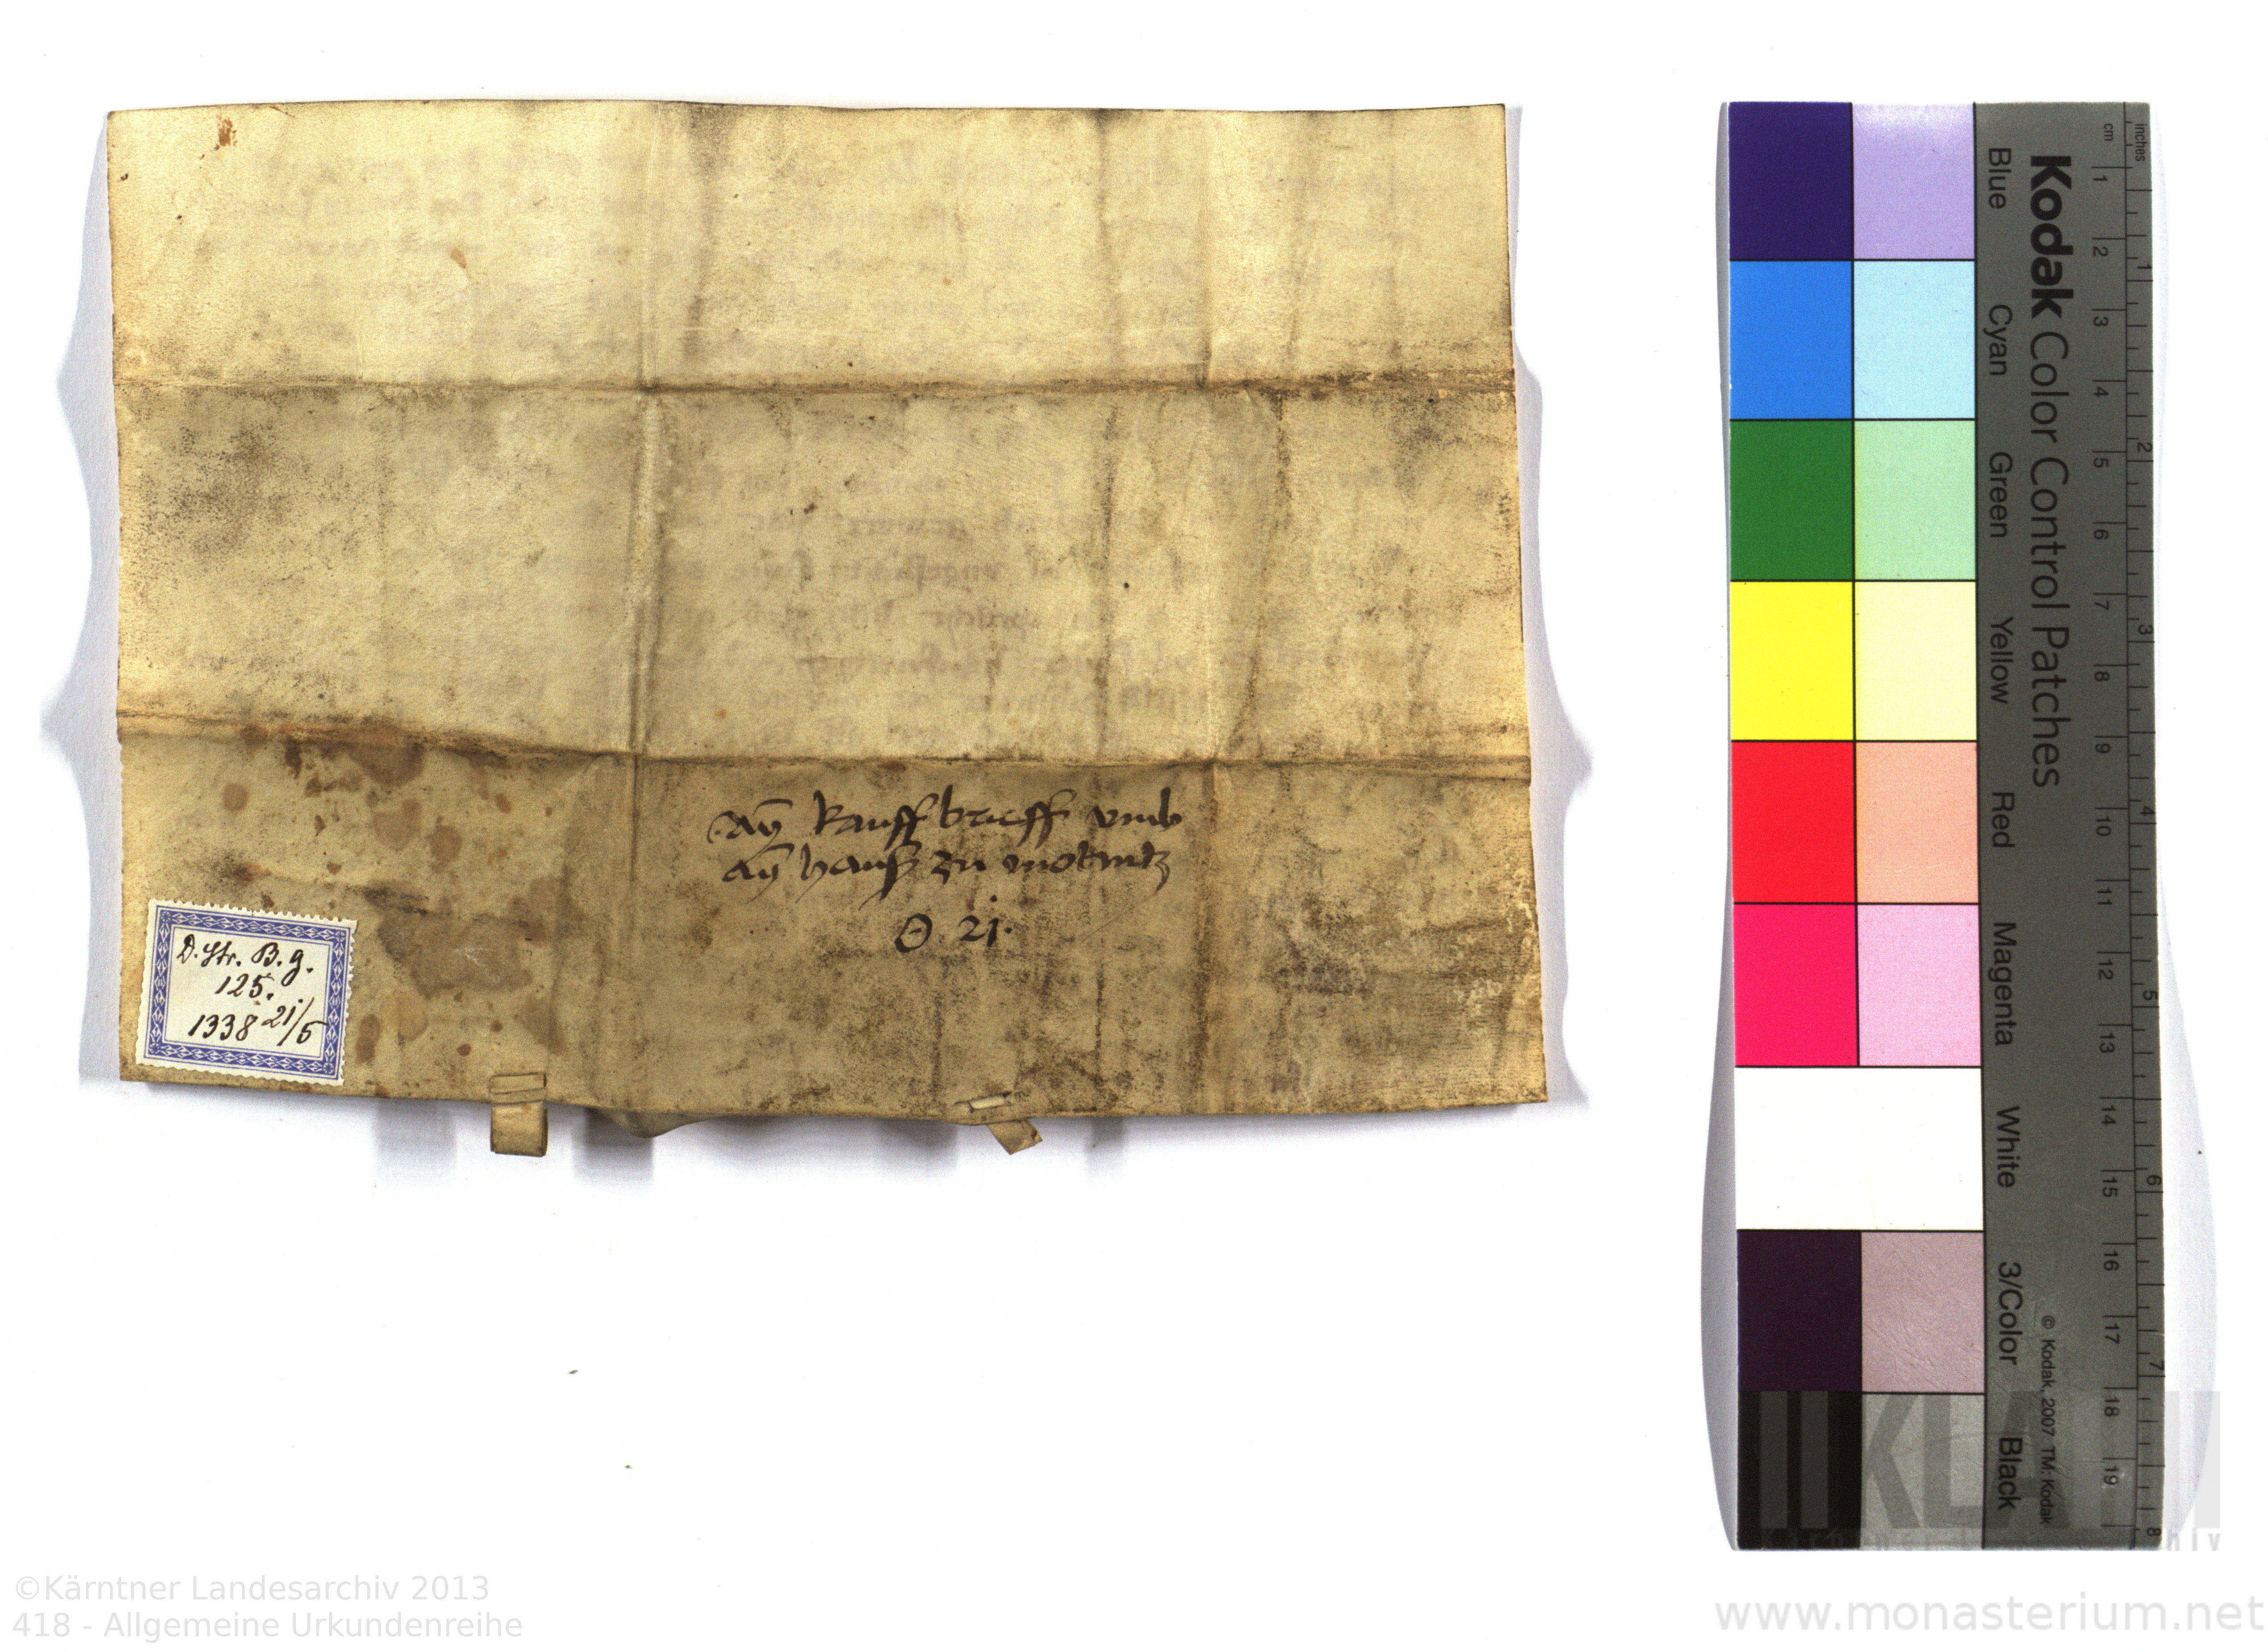 Ayn kauffbrieff vmb
ayn hauss zu motnitz
O 21.
D. Str. B. g.
125.
1338 21/5
Kodak Color Control Patches
Blue Cyan Green Yellow Red Magenta White 3/Color Black
© Kodak, 2007 TM: Kodak
cm 1 2 3 4 5 6 7 8 9 10 11 12 13 14 15 16 17 18 19
inches 1 2 3 4 5 6 7 8
KLA
©Kärntner Landesarchiv 2013
418 - Allgemeine Urkundenreihe
www.monasterium.net